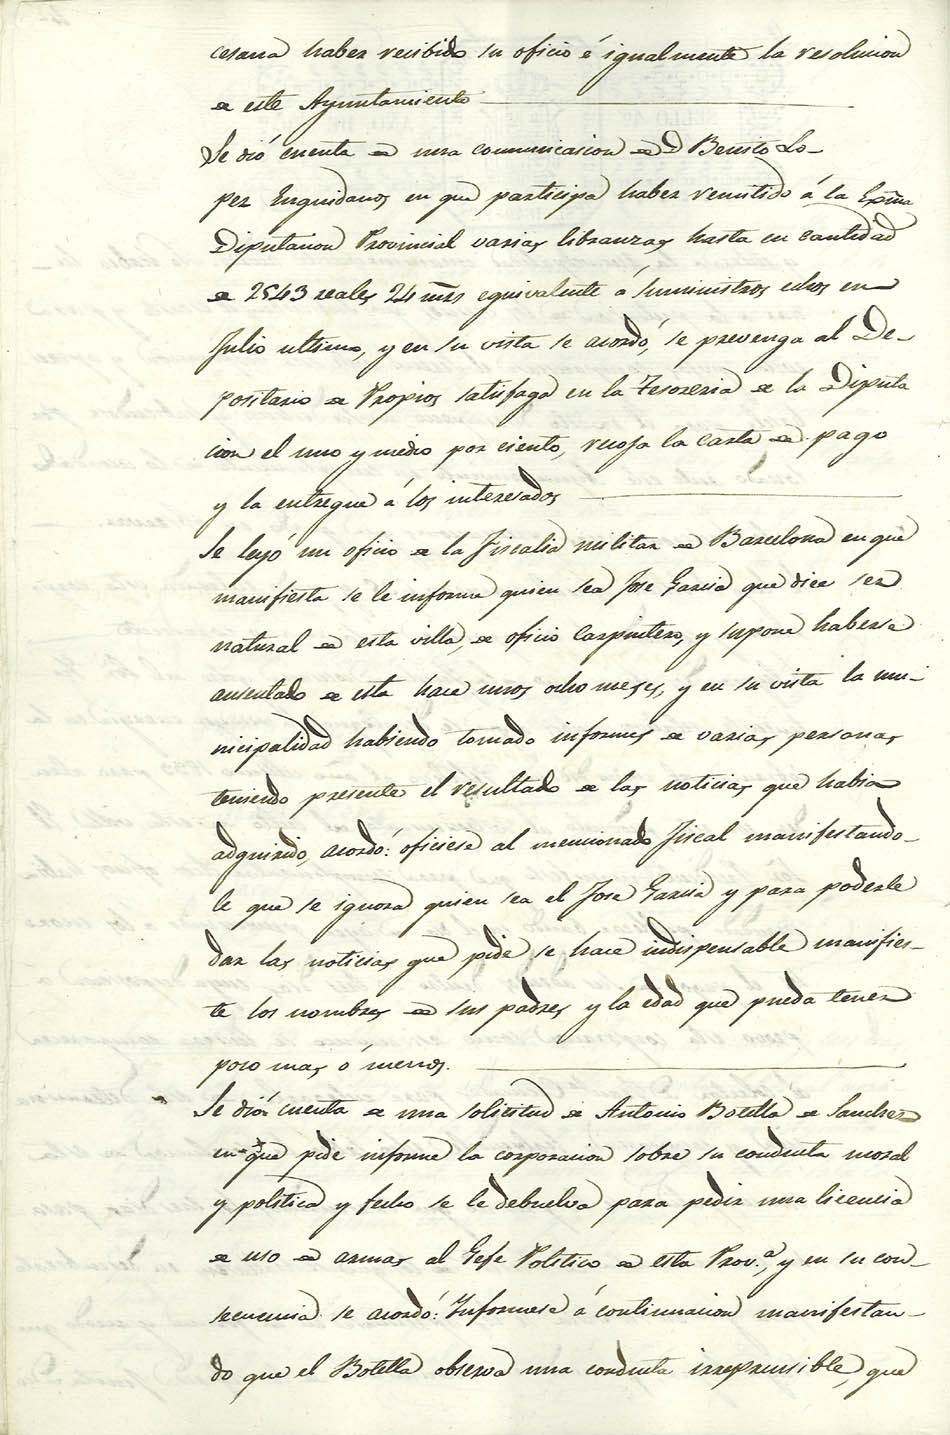 cesana haber recibido su oficio é igualmente la resolucion
de este Ayuntamiento
Se dió cuenta de una comunicacion de D Benito Lo-
pez Enguidanos en que participa haber remitido á la Exma
Diputacion Provincial varias libranzas hasta en cantidad
de 2543 reales 24 mrs equivalente á suministros echos en
Julio ultimo, y en su vista se acordó, se prevenga al De-
positario de Propios satisfaga en la Tesoreria de la Diputa
cion el uno y medio por ciento, recoja la carta de pago
y la entregue á los interesados
Se leyó un oficio de la Fiscalia militar de Barcelona en que
manifiesta se le informe quien sea Jose Garcia que dice ser
natural de esta villa, de oficio Carpintero, y supone haberse
ausentado de esta hace unos ocho meses, y en su vista la mu-
nicipalidad habiendo tomado informes de varias personas
teniendo presente el resultado de las noticias que habia
adquirido, acordó: oficiese al mencionado Fiscal manifestando-
le que se ignora quien sea el Jose Garcia y para poderle
dar las noticias que pide se hace indispensable manifies-
te los nombres de sus padres y la edad que pueda tener
poco mas ó menos.
Se dió cuenta de una solicitud de Antonio Botella de Sanchez
en que pide informe la corporacion sobre su conducta moral
y politica y fecho se le debuelva para pedir una licencia
de uso de armas al Gefe Politico de esta Prov.ª, y en su con-
secuencia se acordó: Informese á continuacion manifestan-
do que el Botella observa una conducta irreprensible, que